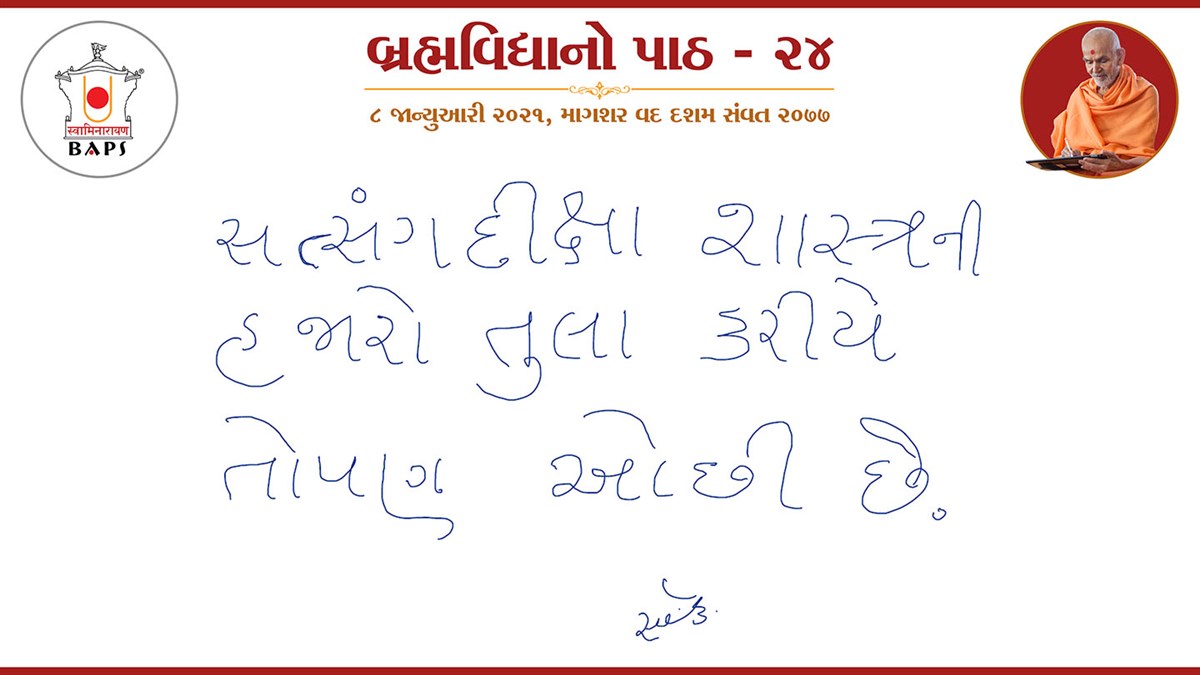 બ્રહ્મવિદ્યાનો પાઠ - ૨૪
૮ જાન્યુઆરી ૨૦૨૧, માગશર વદ દશમ સંવત ૨૦૭૭
स्वामिनारायण
®
BAPS
સત્સંગદીક્ષા શાસ્ત્રની
હજારો તુલા કરીયે
તોપણ ઓછી છે.